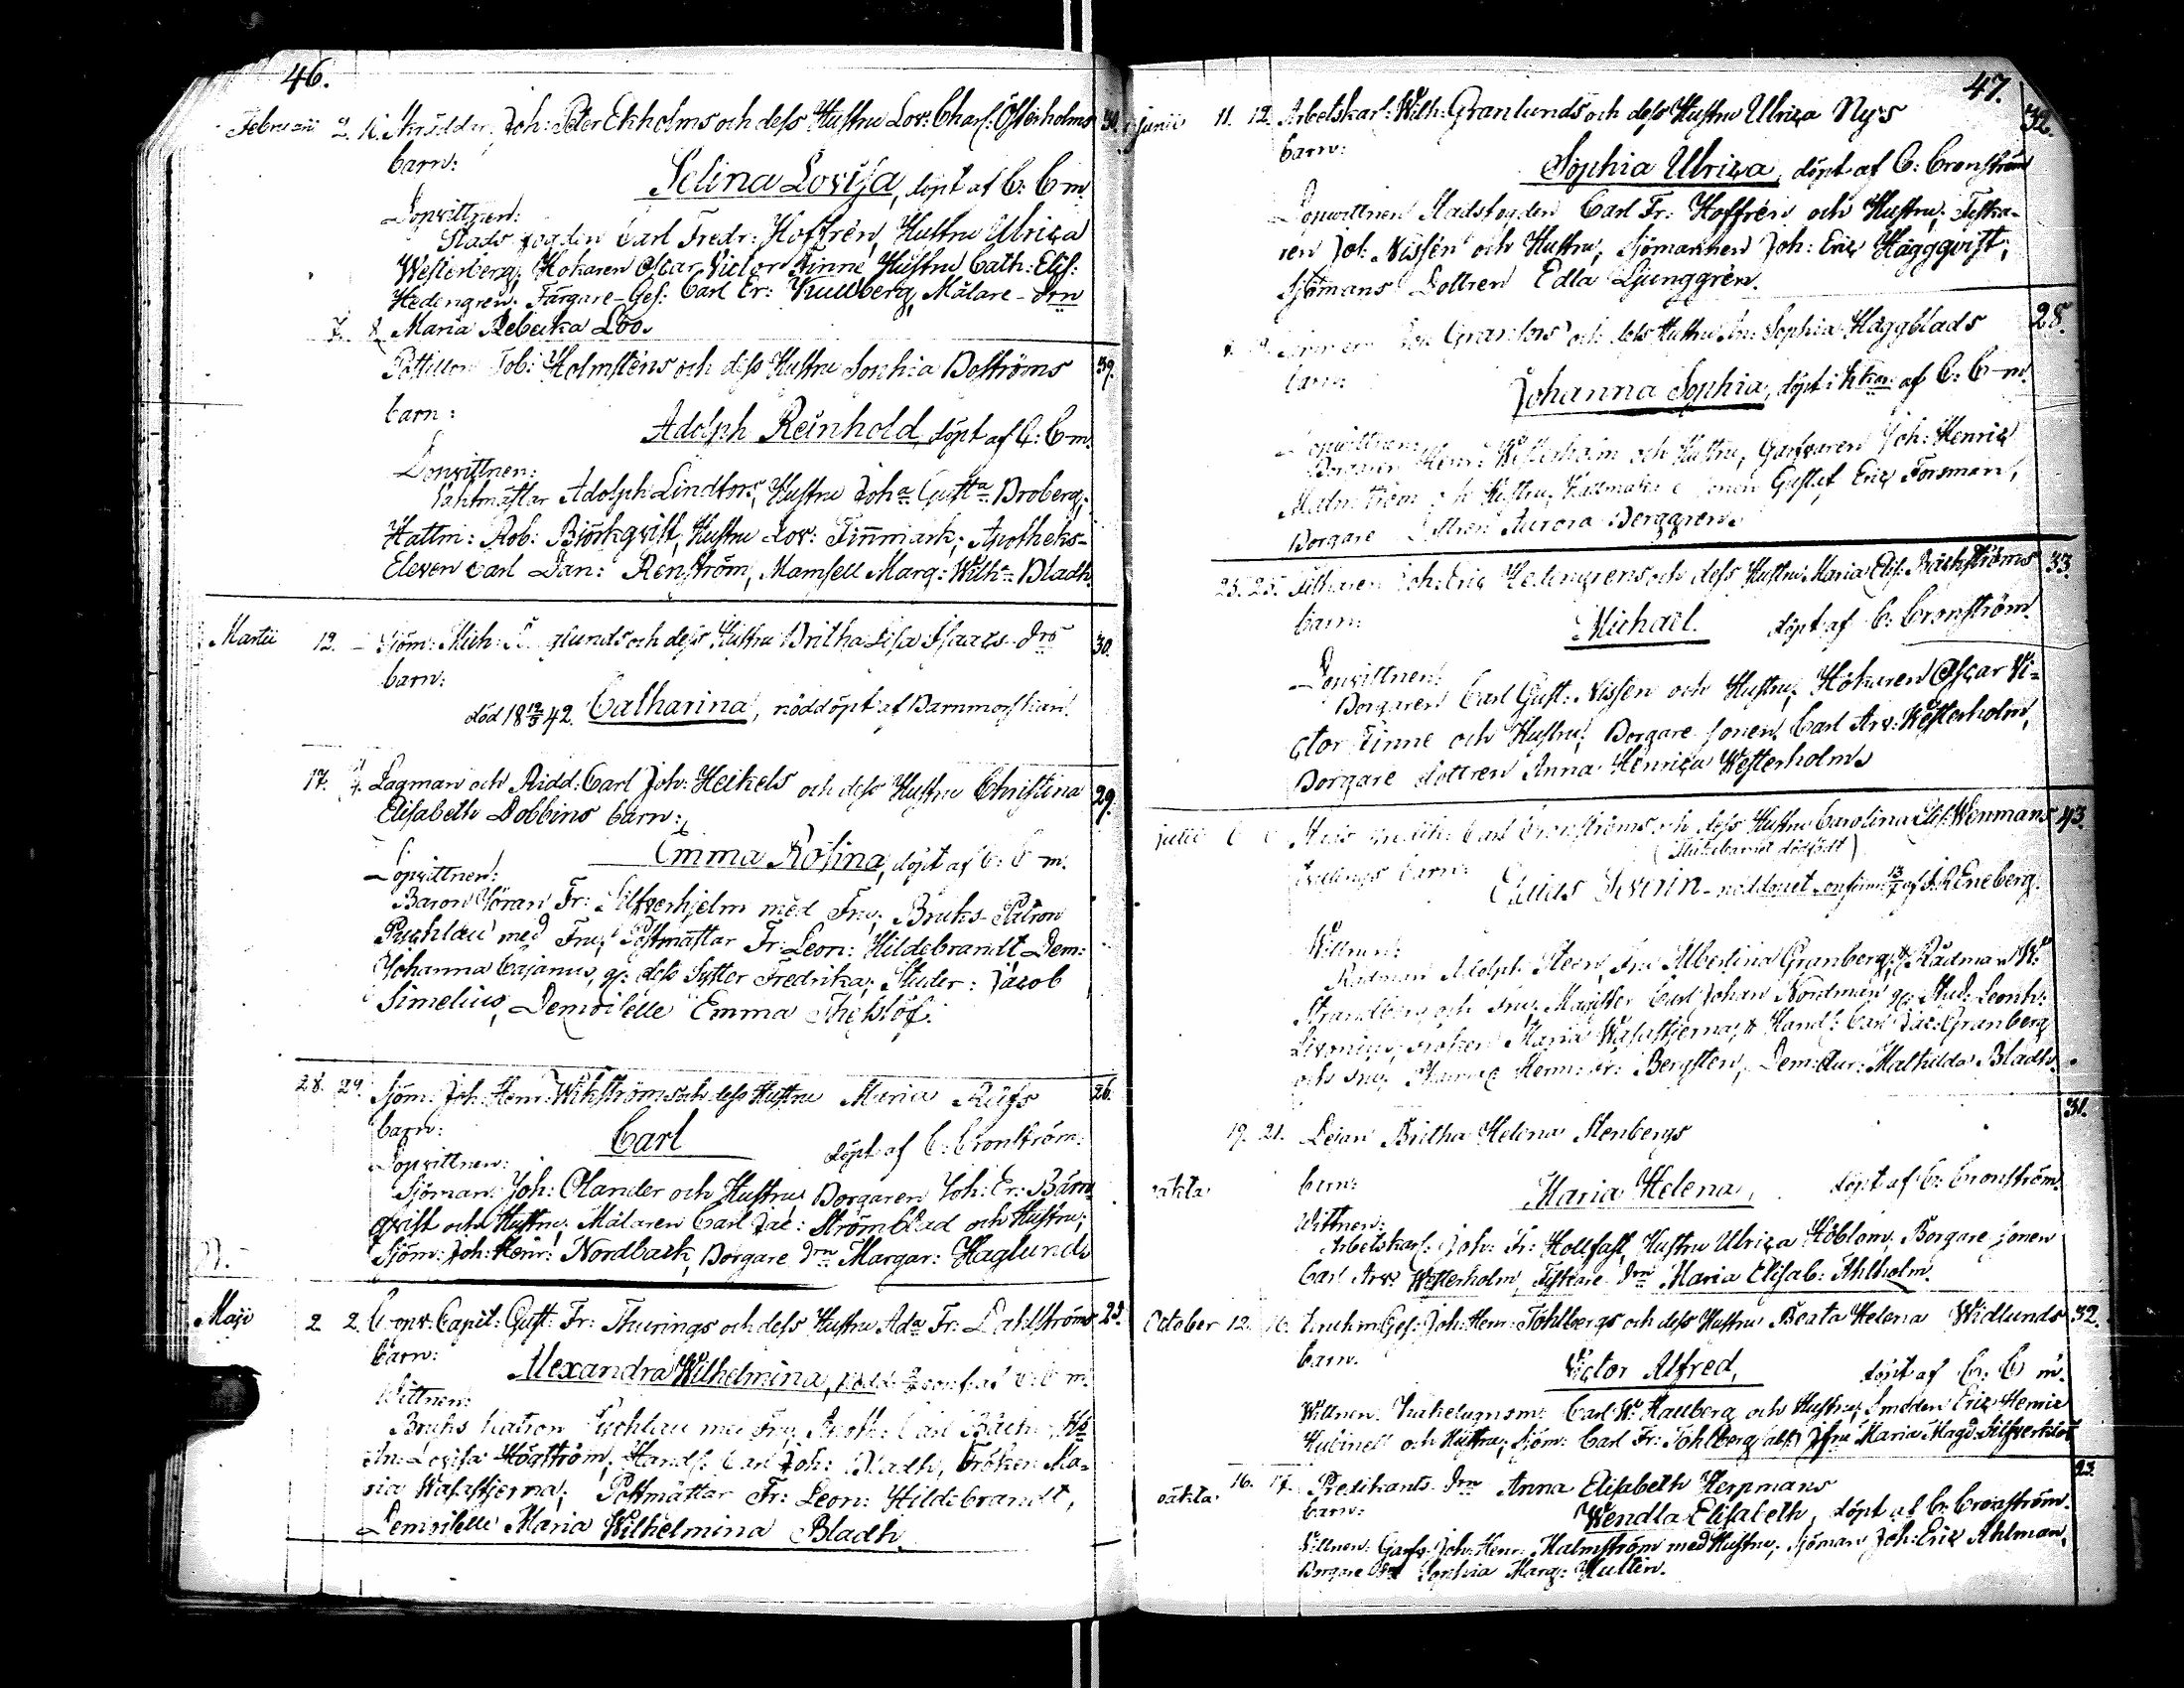 46.
Februarii 2. Skräddar. Joh: Peter Ekholms och dess Hustru Lov: Charl: Österholms
barn:
Selina Lovisa, döpt af C: C-m.
Dopvittnen:
Stads fogden Carl Fredr: Hoffrén, Hustru Ulrica
Westerberg; Hökaren Oscar Victor Finne Hustru Cath: Elis:
Hedengren; Färgare-Ges: Carl Er: Kullberg, Målare-drn
7. 8. Maria Rebecka Loo.
Postillon Tob: Holmsténs och dess Hustru Sophia Boströms 39.
barn:
Adolph Reinhold, döpt af C: C-m.
Dopvittnen:
Vaktmästar Adolph Lindfors, Hustru Joha Gustfa Broberg;
Hattm: Rob: Björkqvist, Hustru Lov: Finnmark; Apotheks-
Eleven Carl Dan: Renström, Mamsell Marg: Wilha Bladh.
Martii 12. Sjöm: Mich: och dess Hustru Britha Lisa Isaacs-drs 30.
barn:
död 18 12/3 42. Catharina, nöddöpt af Barnmorskan.
17. Lagman och Ridd: Carl Joh: Heikels och dess Hustru Christina 29.
Elisabeth Dobbins barn:
Emma Rosina, döpt af C: C-m.
Dopvittnen:
Baron Göran Fr: Silfverhjelm med Fru; Bruks-Patron
Puchlau med Fru; Postmästar Fr: Leon: Hildebrandt, Dem:
Johanna Cajanus, gm dess Syster Fredrika; Studer: Jacob
Simelius, Demoiselle Emma Thetslöf.
28. 29. Sjöm: Joh: Henr: Wikströms och dess Hustru Maria Rufs 26.
barn:
Carl döpt af C: Cronström.
Dopvittnen:
Sjöman: Joh: Olander och Hustru; Borgaren Joh: Er: Bärn
qvist och Hustru; Målaren Carl Jac: Strömblad och Hustru;
Sjöm: Joh: Henr: Nordback, Borgare drn Margar: Haglund
Maji 2 2. Capit: Gust: Fr: Thurings och dess Hustru Ada Fr: Dahlströms 23.
barn:
Alexandra Wilhelmina,
Vittnen:
Bruks Patron Puchlau med Fru; Apoth: Carl Bäck,
Lovisa Högström; Handl: Carl Joh: Bladh, Fröken Ma-
ria Wasastjerna; Postmästar Fr: Leon: Hildebrandt,
Demoiselle Maria Wilhelmina Bladh.
47.
Junii 11. 12. Arbetskarl: Wilh: Granlunds och dess Hustru Ulrica Nys 32.
barn:
Sophia Ulrica, döpt af C: Cronström
Dopvittnen Stadsfogden Carl Fr: Hoffrén och Hustru; Fiska-
ren Joh: Nissén och Hustru; Sjömannen Joh: Eric Häggqvist,
Sjömans Dottren Edla Ljunggrén.
och dess Hustru Sophia Häggblads 28.
barn:
Johanna Sophia, döpt i kkan af C: C-m.
Dopvittnen:
Borgaren Henr: Westerholm och Hustru; Garfvaren Joh: Henric
Malmström och Hustru; sonen Gustaf Eric Forsman,
Borgare Dottren Aurora Berggren.
25. 25. Fiskaren Joh: Eric Hedengrens och dess Hustru Maria Elis: Bäckströms 33.
barn:
Michaël. döpt af C: Cronström.
Dopvittnen:
Borgaren Carl Gust: Nissen och Hustru; Hökaren Oscar Vi-
ctor Finne och Hustru; Borgare sonen Carl Arv: Westerholm,
Borgare dottren Anna Henrica Westerholm.
Julii Carl Cronströms och dess Hustru Carolina Elis: Wenmans 43.
Tvillings barn:
Elias Severin
Vittnen:
Rådman Adolph Steen, Fru Albertina Granberg; Rådman W:
Strandberg och Fru; Magister Carl Johan Nordman gm Stud: Leonh:
Livonius, Fröken Maria Wasastjerna; Handl: Carl Jac: Granberg
och Fru; Henr: Fr: Bergsten, Dem: Aur: Mathilda Bladh.
19. 21. Legan Britha Helena Stenbergs 31.
oäkta barn:
Maria Helena, döpt af C: Cronström.
Vittnen:
Arbetskarl: Joh: Fr: Hollfast, Hustru Ulrica Höblom; Borgare sonen
Carl Arv: Westerholm, Fiskare drn: Maria Elisab: Ahlholm.
October 12. 16. Ges: Joh: Henr: Tohlbergs och dess Hustru Beata Helena Widlunds 32.
barn.
Victor Alfred, döpt af C: C m.
Vittnen: Kakelugnsm: Carl W: Hallberg och Hustru; Smeden Eric Henric
Kubinell och Hustru; Sjöm: Carl Fr: Tohlberg, Jfru Maria Magd: Silfverklot
oäkta. 16. 17. Predikants drn Anna Elisabeth Herpmans 23.
barn:
Wendla Elisabeth, döpt af C: Cronström.
Vittnen: Garfv: Joh: Henr: Malmström med Hustru; Sjöman Joh: Eric Ahlman,
Borgare Sophia Marg: Hultin.